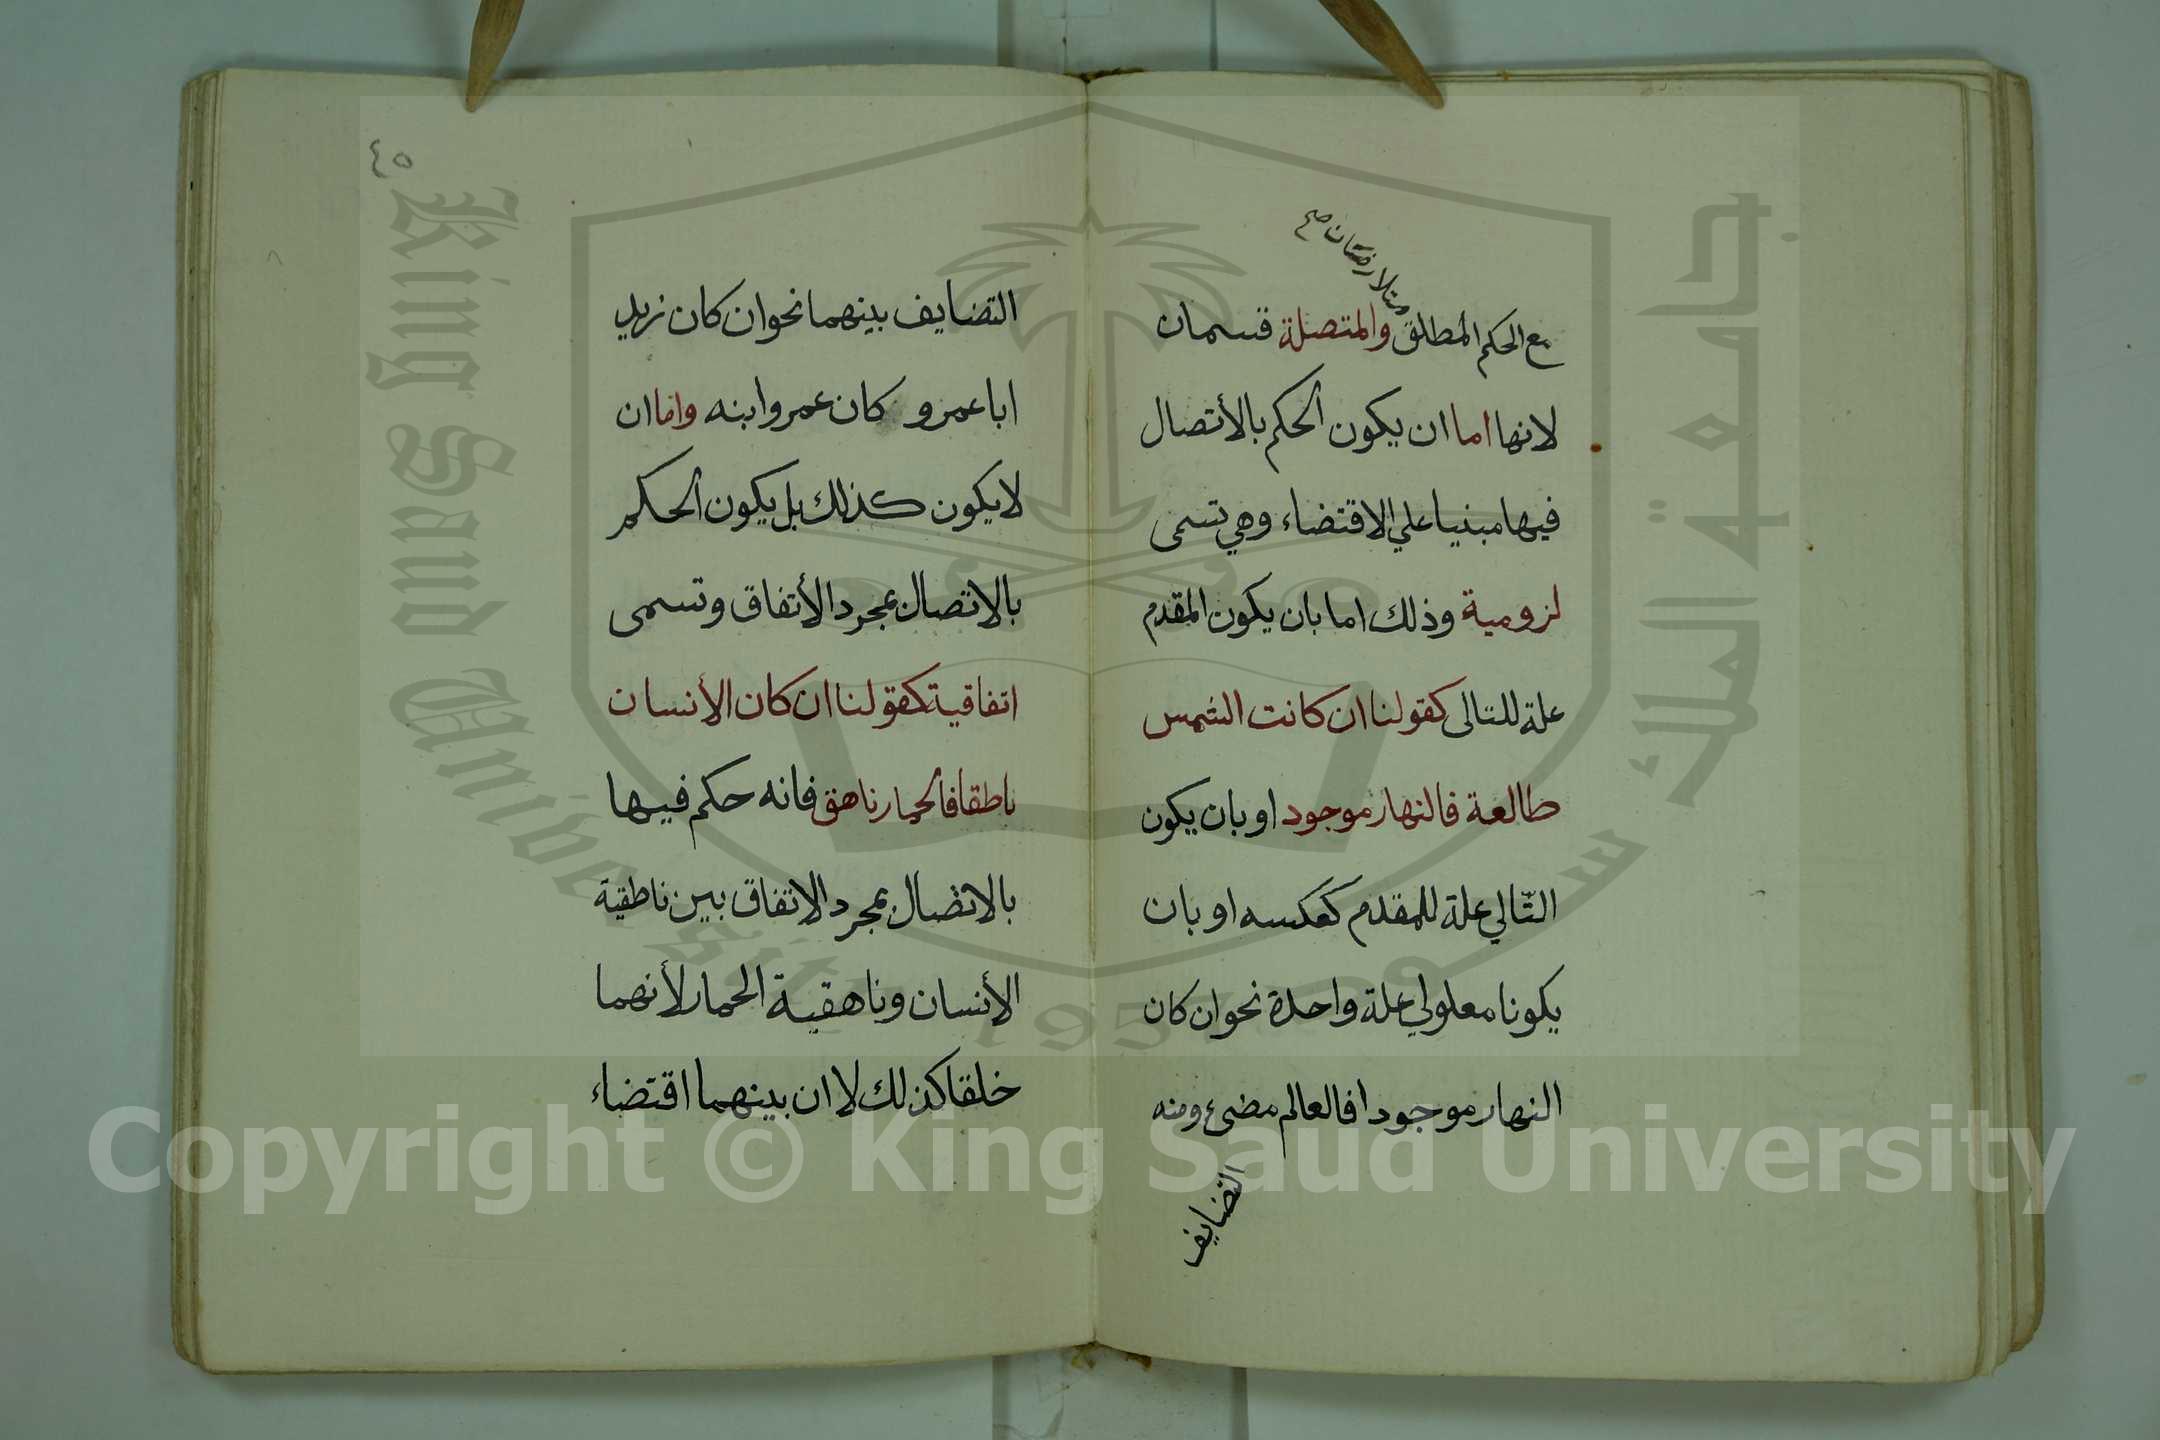 مع الحكم المطلق والمتصلة قسمان
لانها اما ان يكون الحكم بالأتصال
فيها مبنيا علي الاقتضاء وهي تسمى
لزومية وذلك اما بان يكون المقدم
علة للتالى كقولنا ان كانت الشمس
طالعة فالنهار موجود او بان يكون
التّالي علة للمقدم كعكسه او بان
يكونا معلولي علة واحدة نحو ان كان
النهار موجودا فالعالم مضىء ومنه
التضايف
٤٥
التضايف بينهما نحو ان كان زيد
ابا عمرو كان عمرو ابنه واما ان
لا يكون كذلك بل يكون الحكم
بالاتصال بمجرد الأتفاق وتسمى
اتفاقية كقولنا ان كان الأنسان
ناطقا فالحمار ناهق فانه حكم فيها
بالاتصال بمجرد الاتفاق بين ناطقية
الأنسان وناهقية الحمار لأنهما
خلقا كذلك لا ان بينهما اقتضاء
جامعة الملك سعود
King Saud University
1957
Copyright © King Saud University